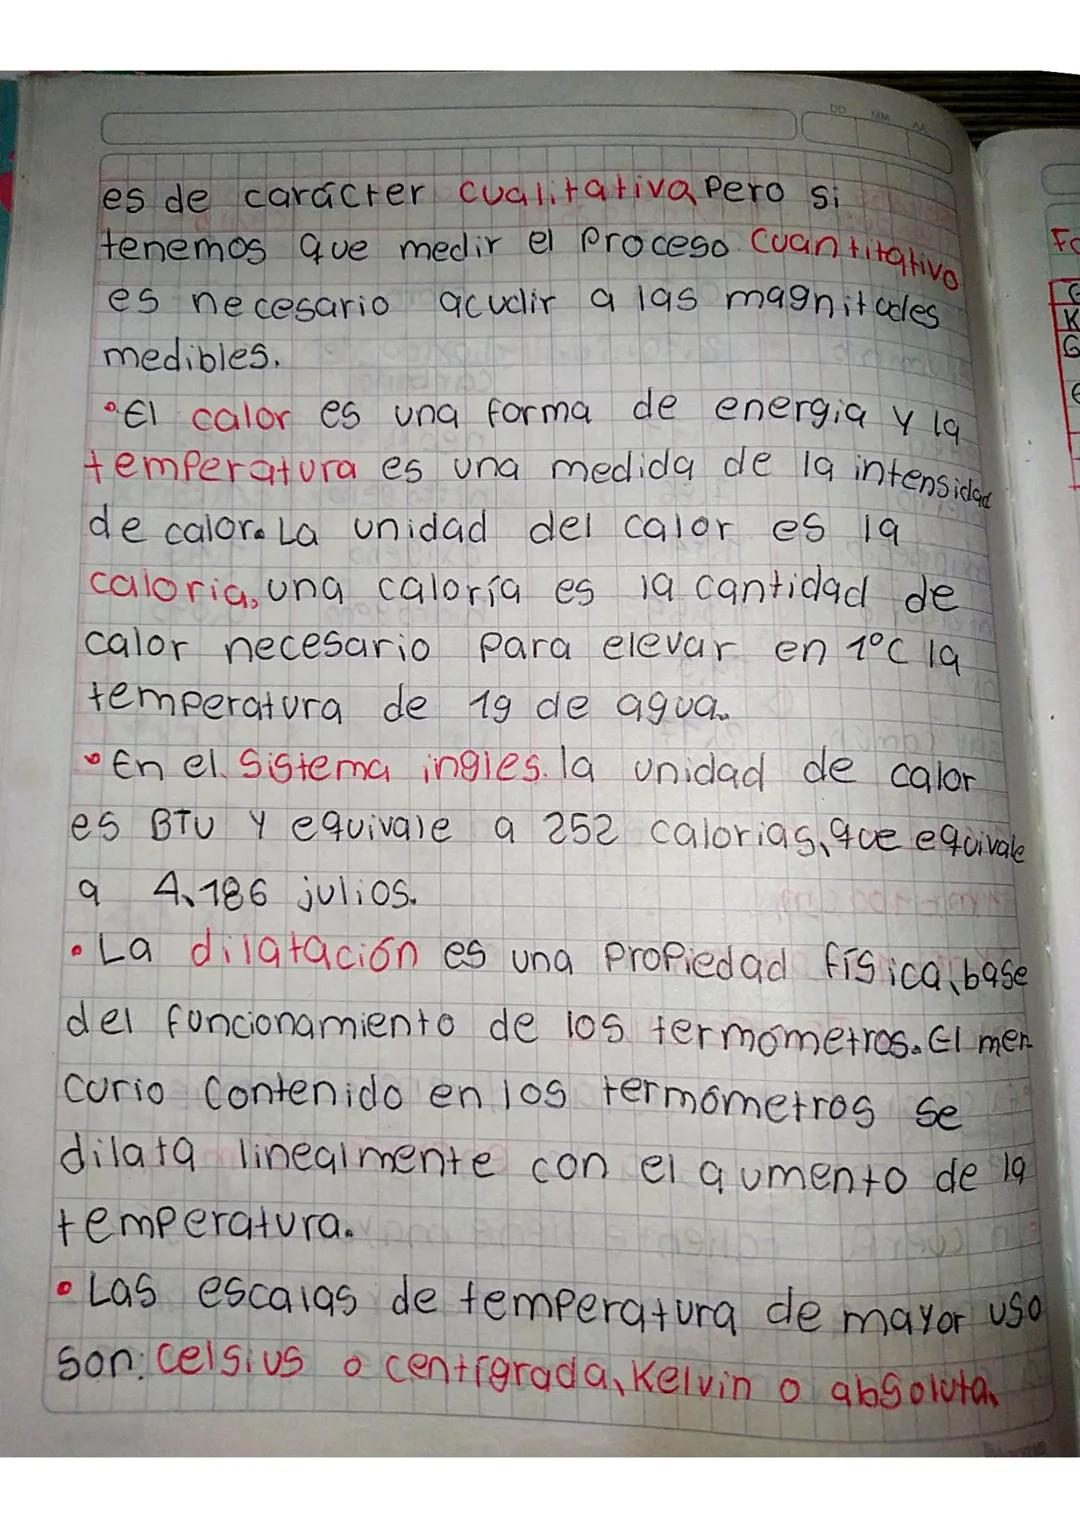 DD MM AA
es de carácter cualitativa, pero si
tenemos que medir el proceso cuantitativo
es necesario acudir a las magnitudes
medibles.
• El calor es una forma de energia y la
temperatura es una medida de la intensidad
de calor. La unidad del calor es la
caloria, una caloría es la cantidad de
calor necesario para elevar en 1°C la
temperatura de 1g de agua.
• En el sistema ingles. la unidad de calor
es BTU y equivale a 252 calorias, que equivale
a 4,186 julios.
• La dilatación es una propiedad física, base
del funcionamiento de los termómetros. El mer-
curio contenido en los termómetros se
dilata linealmente con el aumento de la
temperatura.
• Las escalas de temperatura de mayor uso
son: celsius o centígrada, Kelvin o absoluta,